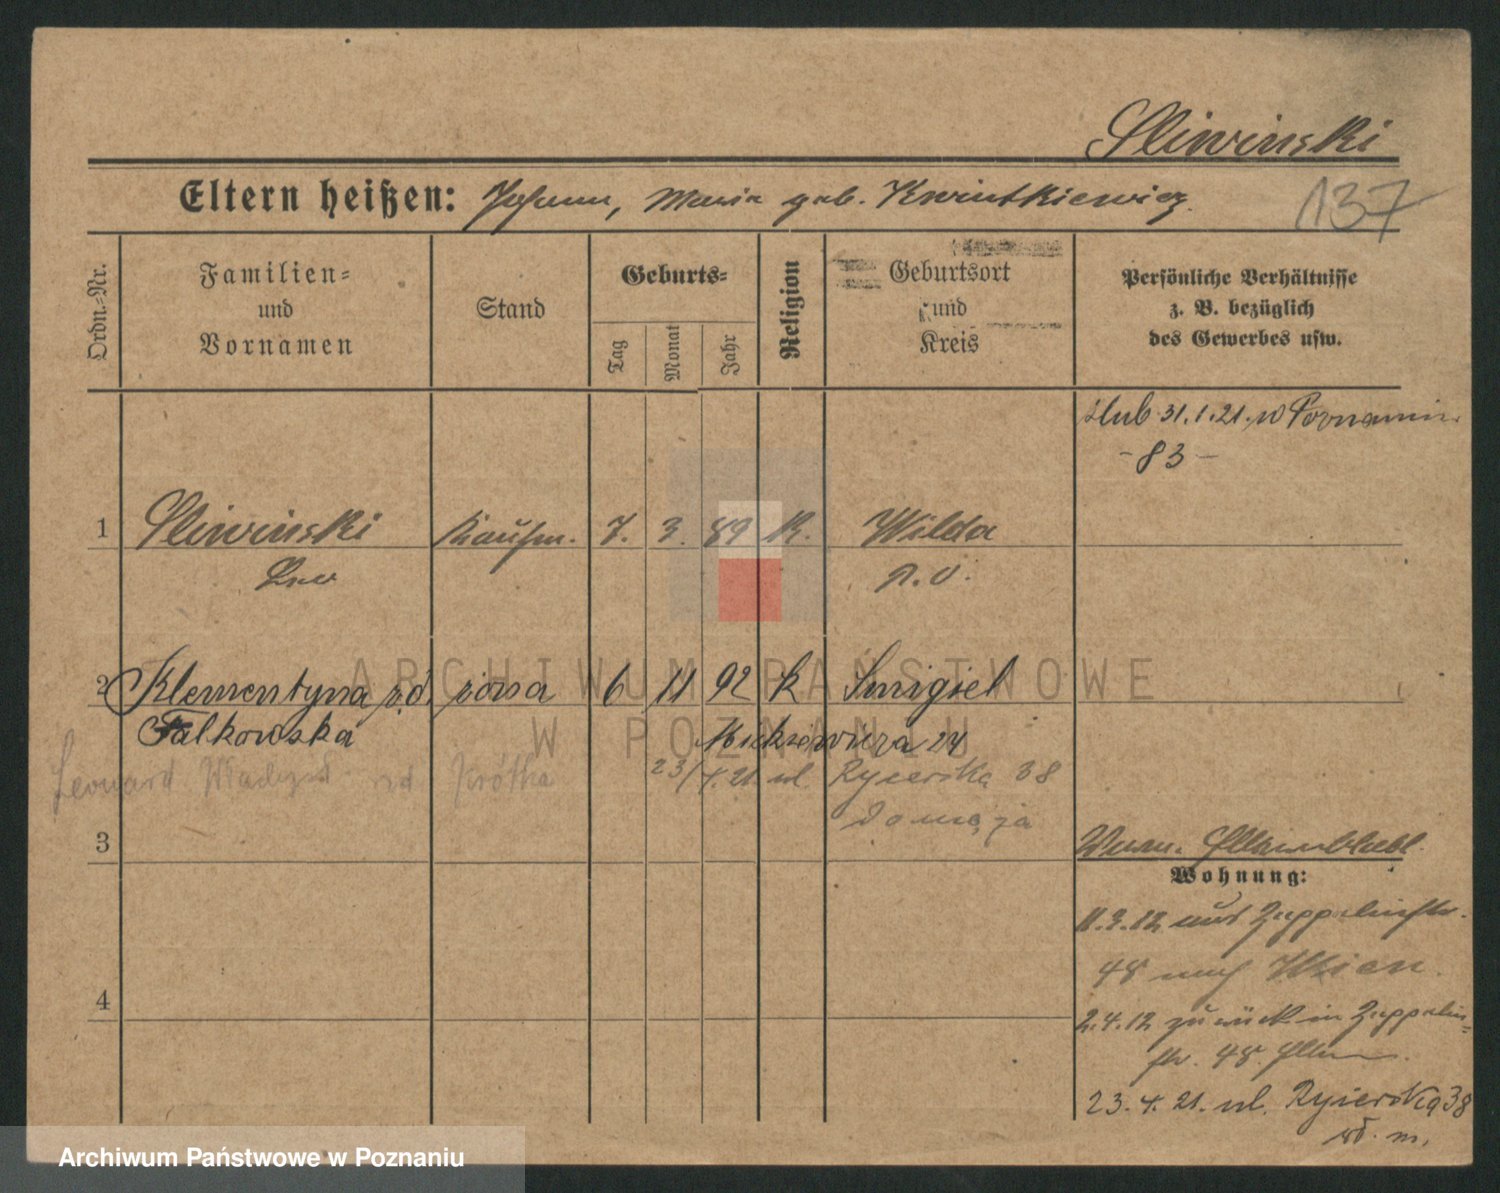 Sliwinski
Eltern heißen: Johann, Maria geb. Kwiatkiewicz
137
Ordn.-Nr.
Familien-
und
Vornamen
Stand
Geburts-
Tag
Monat
Jahr
Religion
Geburtsort
und
Kreis
Persönliche Verhältnisse
z. B. bezüglich
des Gewerbes usw.
ślub 31.1.21. w Poznaniu
- 83 -
1 Sliwinski Kaufm. 7. 3. 89 K. Wilda
Leo P. O.
2 Klementyna z d. żona 6 11 92 k Smigiel
Falkowska
24
Leonard Krótka 23/4. 21. ul. Rycerska 38
3
Wohnung:
11.3.12 Zeppelinstr.
48 nach Wien.
2.4.12 zurück in Zeppelin-
str. 48.
4
23.4.21. ul. Rycerska 38
ARCHIWUM PAŃSTWOWE
W POZNANIU
Archiwum Państwowe w Poznaniu